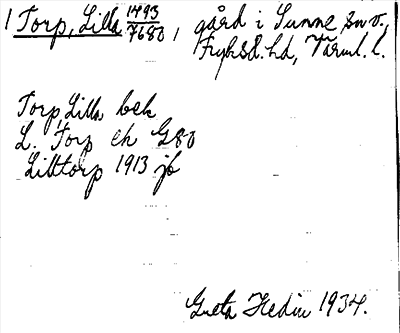 1 Torp, Lilla 1493/7680, gård i Sunne sn v.,
Fryksd. hd, Värml. l.
Torp, Lilla bek
L. Torp ek G80
Lilltorp 1913 jb
Greta Hedin 1934.